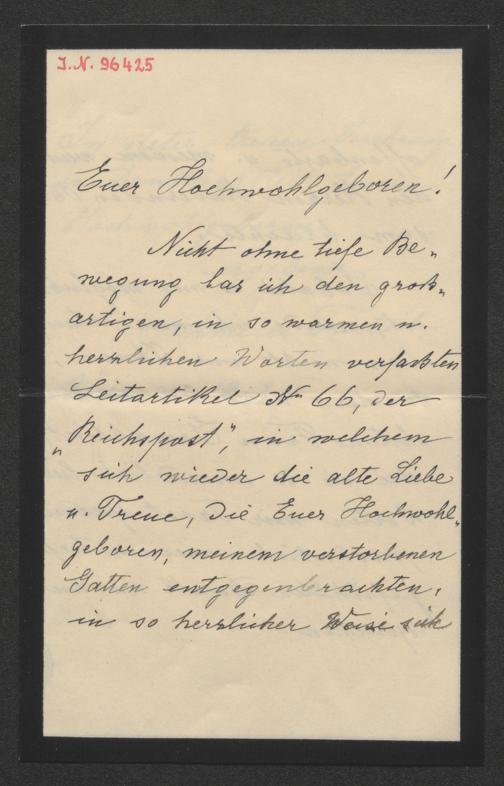 I.N. 96425
Euer Hochwohlgeboren!
Nicht ohne tiefe Be-
wegung las ich den groß-
artigen, in so warmen u.
herrlichen Worten verfaßten
Leitartikel No 66, der
„Reichspost", in welchem
sich wieder die alte Liebe
u. Treue, die Euer Hochwohl-
geboren, meinem verstorbenen
Gatten entgegenbrachten,
in so herrlicher Weise sich